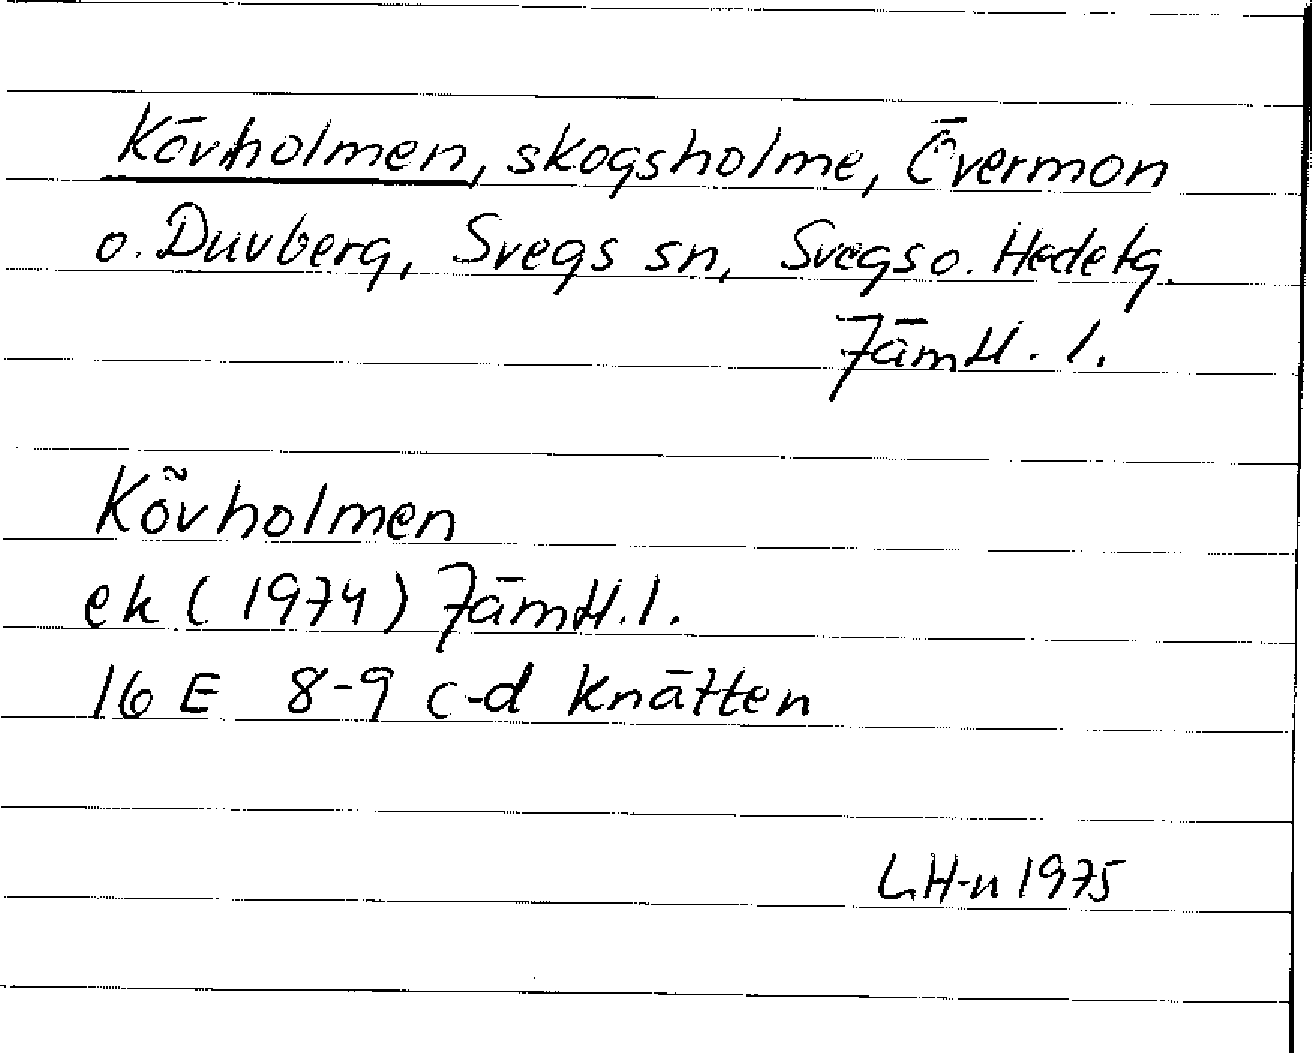 Kövholmen, skogsholme, Övermon
o. Duvberg, Svegs sn, Svegs o. Hede tg.
Jämtl. l.
Kövholmen
ek (1974) Jämtl. l.
16 E 8-9 c-d Knätten
LH-n 1975